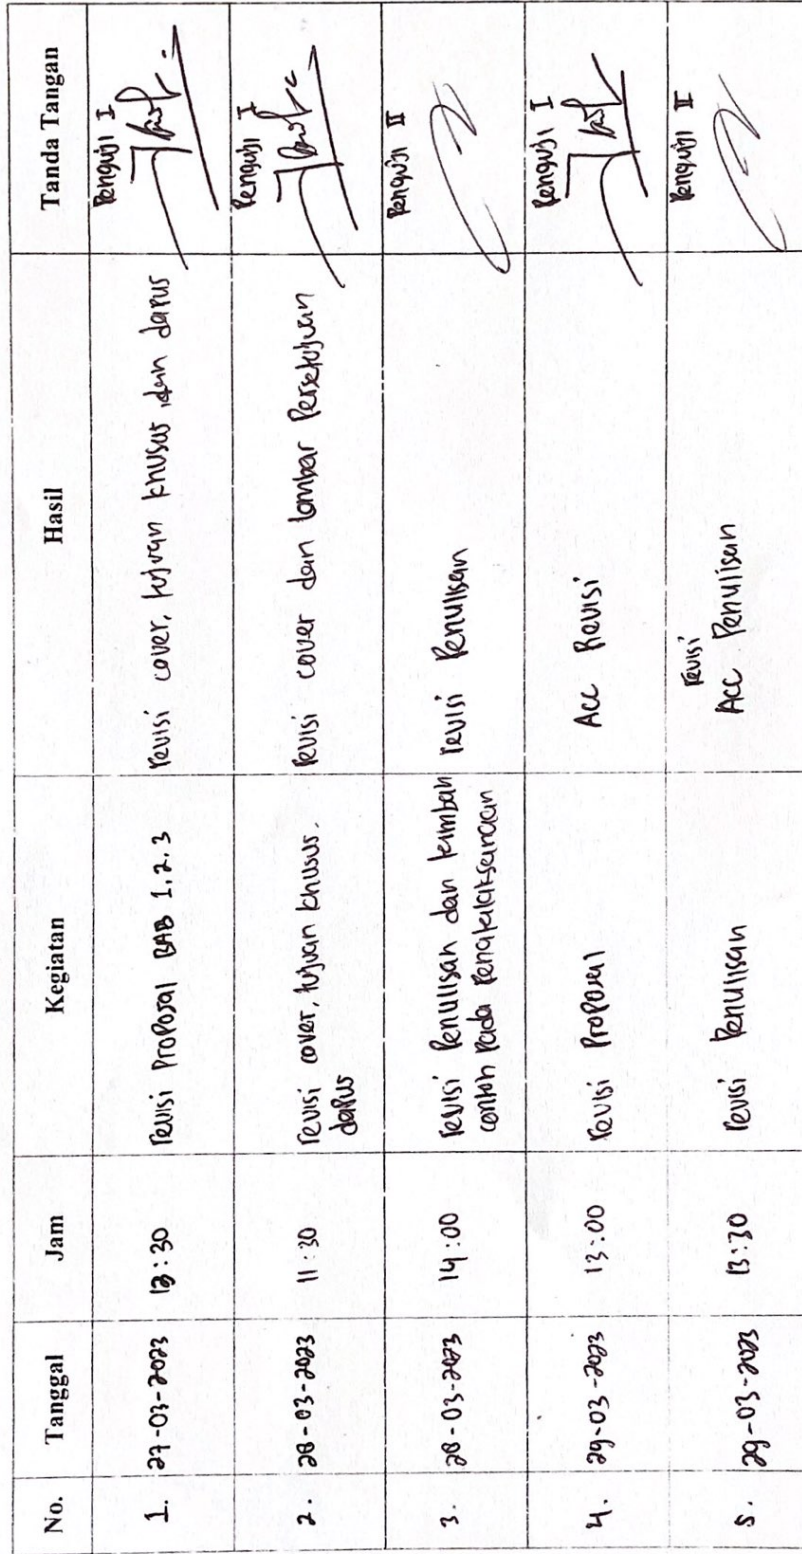 No. Tanggal Jam Kegiatan Hasil Tanda Tangan
1. 27-03-2023 13:30 revisi Proposal BAB 1.2.3 revisi cover, tujuan khusus dan dapus Penguji I
2. 28-03-2023 11:30 revisi cover, tujuan khusus, revisi cover dan lembar Persetujuan Penguji I
dapus
3. 28-03-2023 14:00 revisi Penulisan dan revisi Penulisan Penguji II
contoh Pada Penatalaksanaan
4. 29-03-2023 13:00 Revisi Proposal Acc Revisi Penguji I
revisi
5. 29-03-2023 13:30 revisi Penulisan Acc Penulisan Penguji II